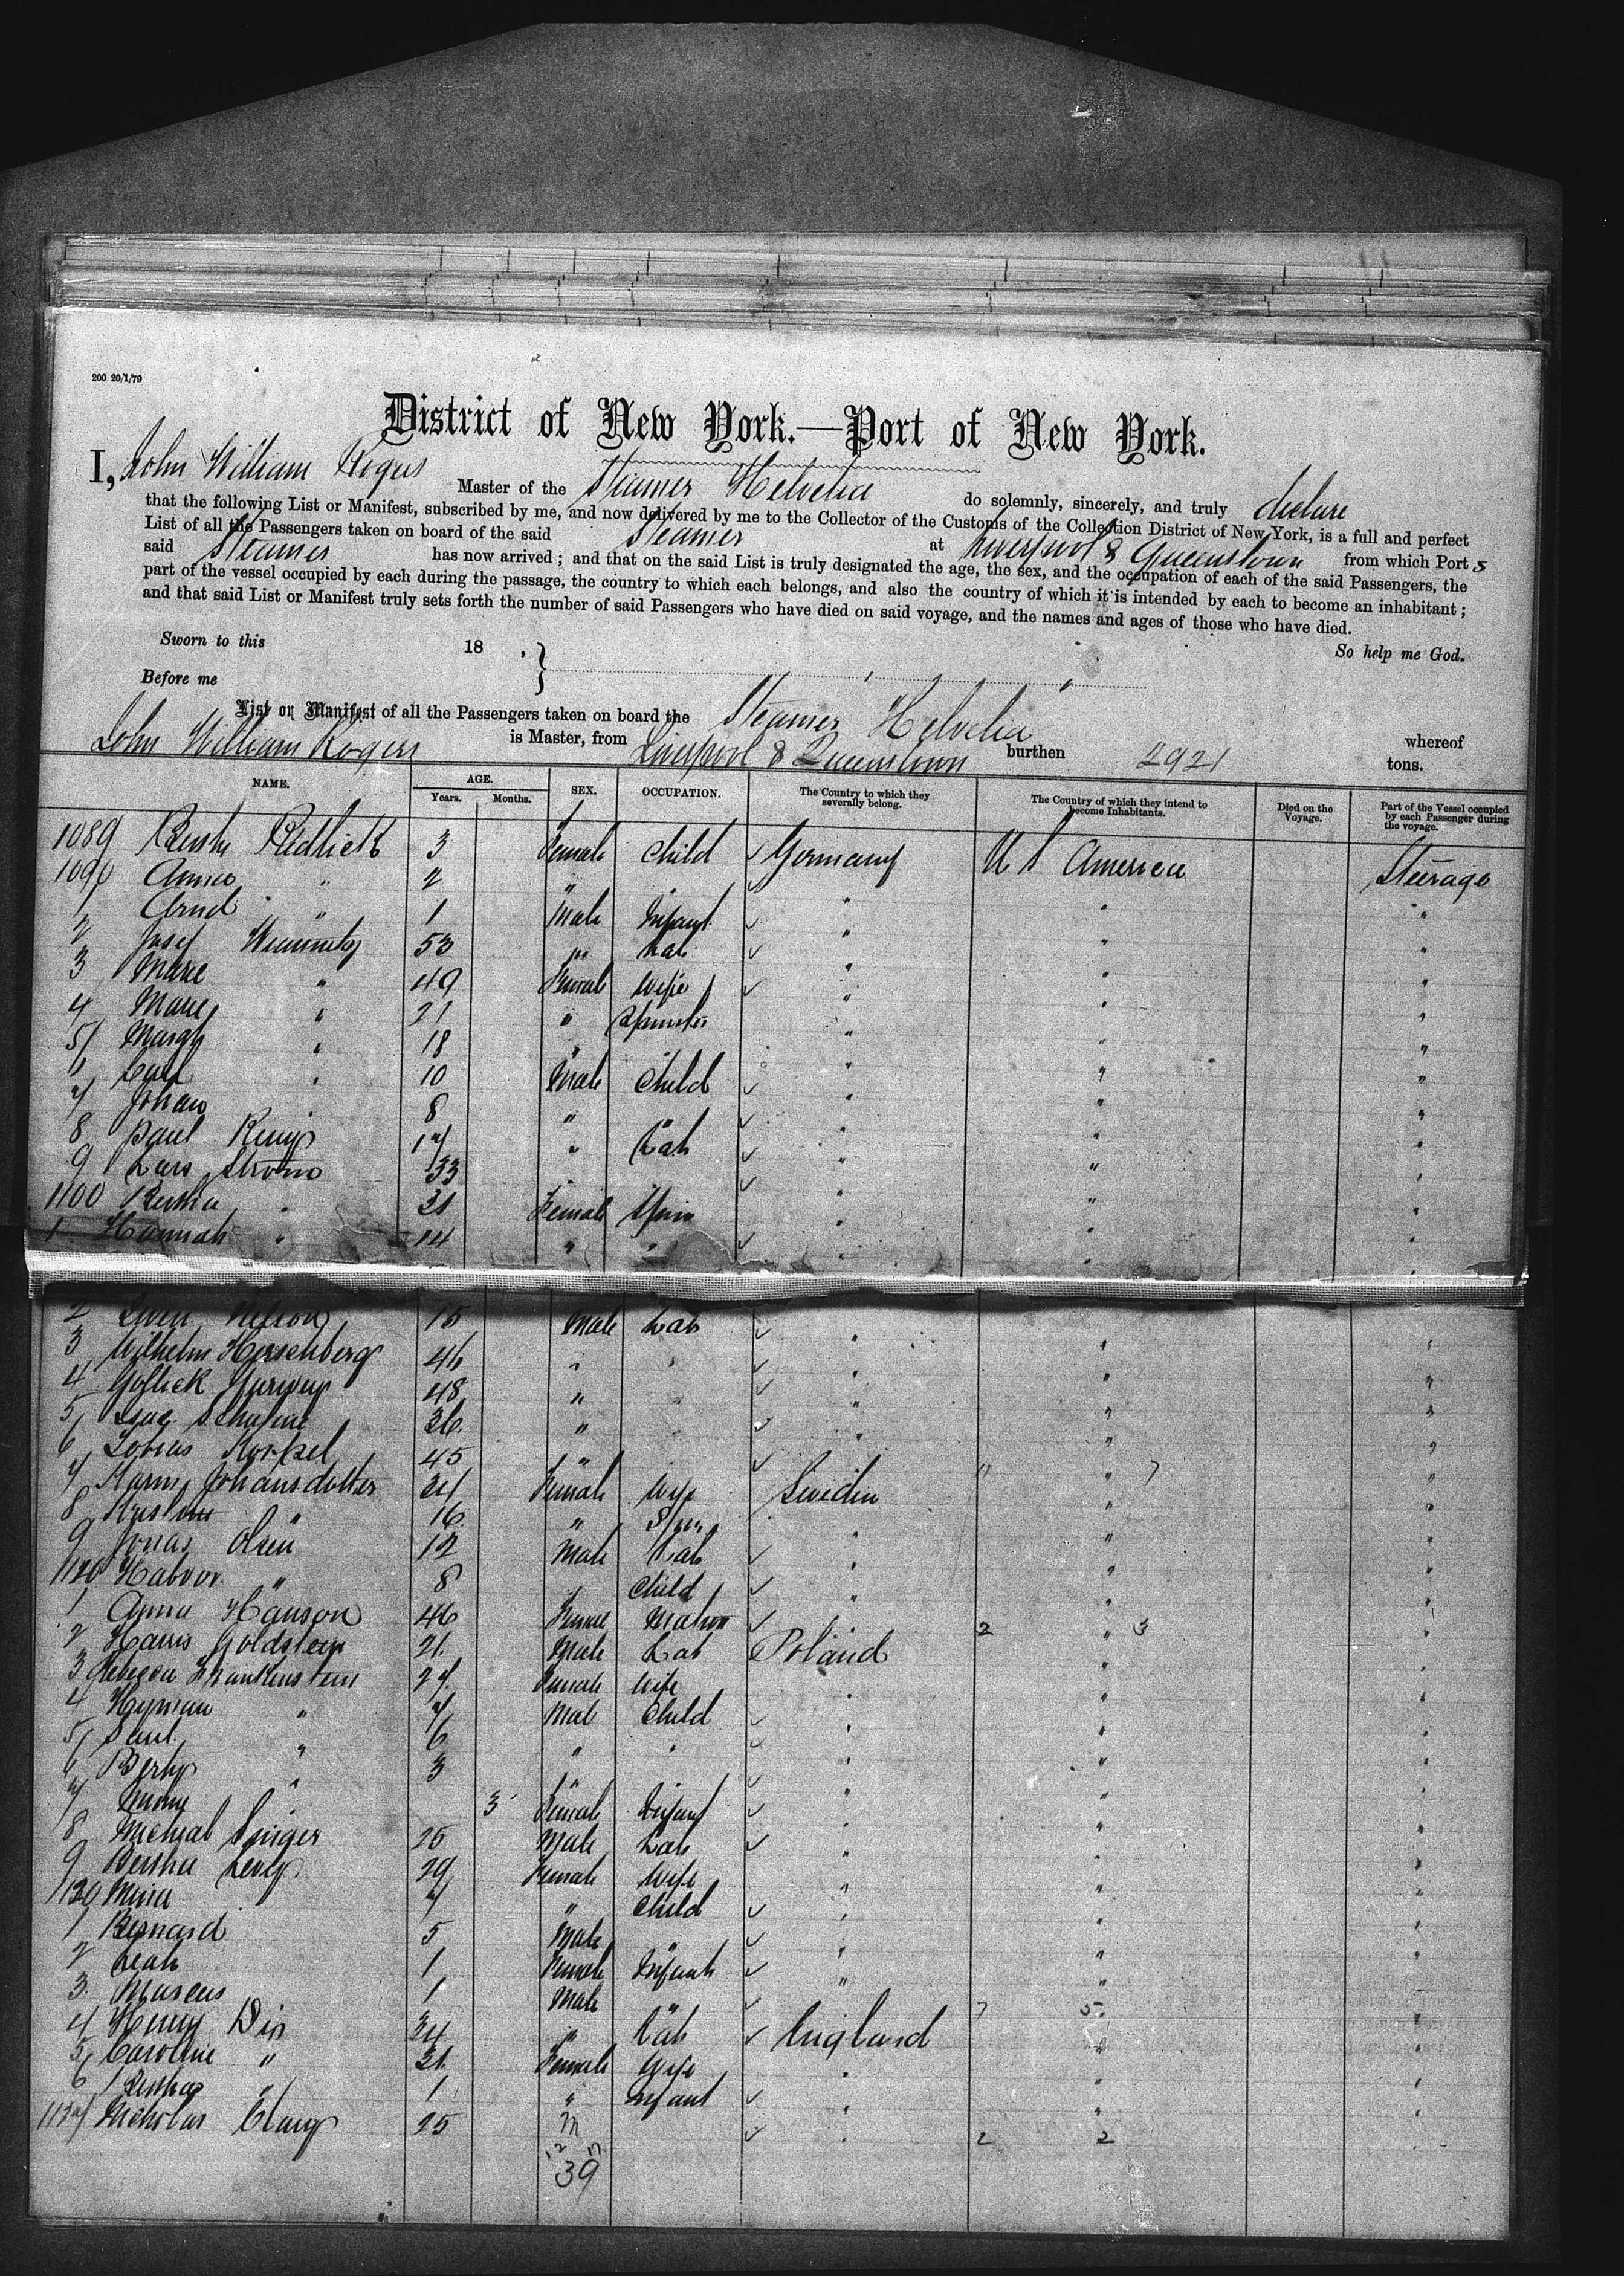 200 20/1/79
District of New York.—Port of New York.
I, John William Rogers Master of the Steamer Helvetia do solemnly, sincerely, and truly declare
that the following List or Manifest, subscribed by me, and now delivered by me to the Collector of the Customs of the Collection District of New York, is a full and perfect
List of all the Passengers taken on board of the said Steamer at Liverpool & Queenstown from which Ports
said Steamer has now arrived; and that on the said List is truly designated the age, the sex, and the occupation of each of the said Passengers, the
part of the vessel occupied by each during the passage, the country to which each belongs, and also the country of which it is intended by each to become an inhabitant;
and that said List or Manifest truly sets forth the number of said Passengers who have died on said voyage, and the names and ages of those who have died.
Sworn to this 18 . So help me God.
Before me
List or Manifest of all the Passengers taken on board the Steamer Helvetia whereof
John William Rogers is Master, from Liverpool & Queenstown burthen 2921 tons.
NAME. AGE. Years. Months. SEX. OCCUPATION. The Country to which they severally belong. The Country of which they intend to become Inhabitants. Died on the Voyage. Part of the Vessel occupied by each Passenger during the voyage.
1089 3 Female Child Germany U S America Steerage
1090 Anna " 2 " " " "
1 " 1 Male Infant " " "
2 Josef 53 " Lab " " "
3 Marie " 49 Female Wife " " "
4 Marie " 21 " Spinster " " "
5 Margt " 18 " " " "
Carl " 10 Male Child " " "
7 Johan 8 " " " " "
8 Paul 17 " Lab " " "
9 Lars Strom 33 " " "
1100 Bertha " 31 Female Spin " " "
1 Hannah " 14 " " " " "
2 Nelson 15 Male Lab " " "
3 Wilhelm Herschberg 46 " " " " "
4 48 " " " " "
5 Isac 36 " " " "
6 Tobias 45 " " "
7 Karin Johansdotter 34 Female Wife Sweden " "
8 " 16 " Spin " "
9 Jonas Olsen 12 Male Lab " " "
1120 Halvor " 8 Child " " "
1 Anna Hanson 46 Female Matron " 2 " 3 "
2 Harris Goldstein 21 Male Lab Poland " "
3 Rebecca Frankenstein 27 Female Wife " " "
4 Hyman " 7 Male Child " " "
5 Saul " 6 " " " " "
6 " 3 " " " "
7 3 Female Infant " " "
8 Micheal Singer 25 Male Lab " " "
9 Bertha Levy 29 Female Wife " " "
1130 7 " Child " " "
1 Bernard 5 Male " " " "
2 Leah 1 Female Infant " " "
3 Marcus 1 Male " 7 5 "
4 Henry 34 " Lab England " "
5 Caroline " 31 Female Wife " " "
6 " 1 " Infant " " "
1137 Nicholas 25 M " 2 2
39